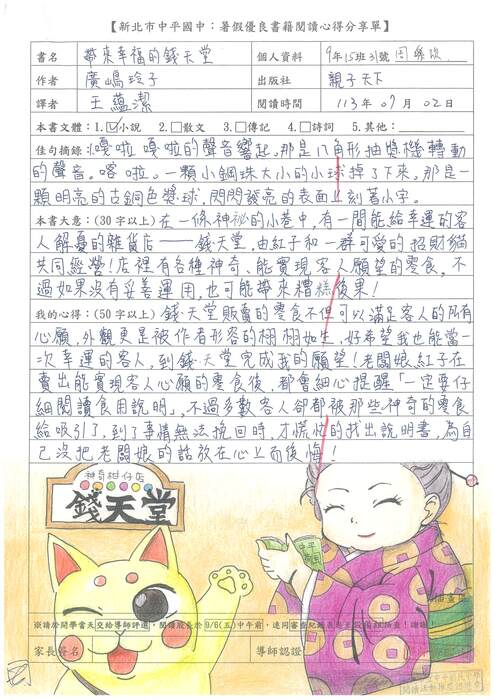 【新北市中平國中：暑假優良書籍閱讀心得分享單】
書名 帶來幸福的錢天堂 個人資料 9年15班31號
作者 廣嶋玲子 出版社 親子天下
譯者 王蘊潔 閱讀時間 113年07月02日
本書文體：1.☑小說 2.□散文 3.□傳記 4.□詩詞 5.其他：
佳句摘錄：嘎啦 嘎啦的聲音響起。那是八角形抽獎機轉動
的聲音。喀啦。一顆小鋼珠大小的小球掉了下來，那是一
顆明亮的古銅色獎球，閃閃發亮的表面上刻著小字。
本書大意：(30字以上)在一條神祕的小巷中，有一間能給幸運的客
人解憂的雜貨店——錢天堂，由紅子和一群可愛的招財貓
共同經營！店裡有各種神奇、能實現客人願望的零食，不
過如果沒有妥善運用，也可能帶來糟糕後果！
我的心得：(50字以上)錢天堂販賣的零食不但可以滿足客人的所有
心願，外觀更是被作者形容的栩栩如生，好希望我也能當一
次幸運的客人，到錢天堂完成我的願望！老闆娘紅子在
賣出能實現客人心願的零食後，都會細心提醒「一定要仔
細閱讀食用說明」，不過多數客人卻都被那些神奇的零食
給吸引了，到了事情無法挽回時，才慌忙的找出說明書，為自
己沒把老闆娘的話放在心上而後悔！
神奇柑仔店
錢天堂
中平國中
※請於開學當天交給導師評選，閱讀股長於9/6(五)中午前，連同審查紀錄表
家長簽名 導師認證